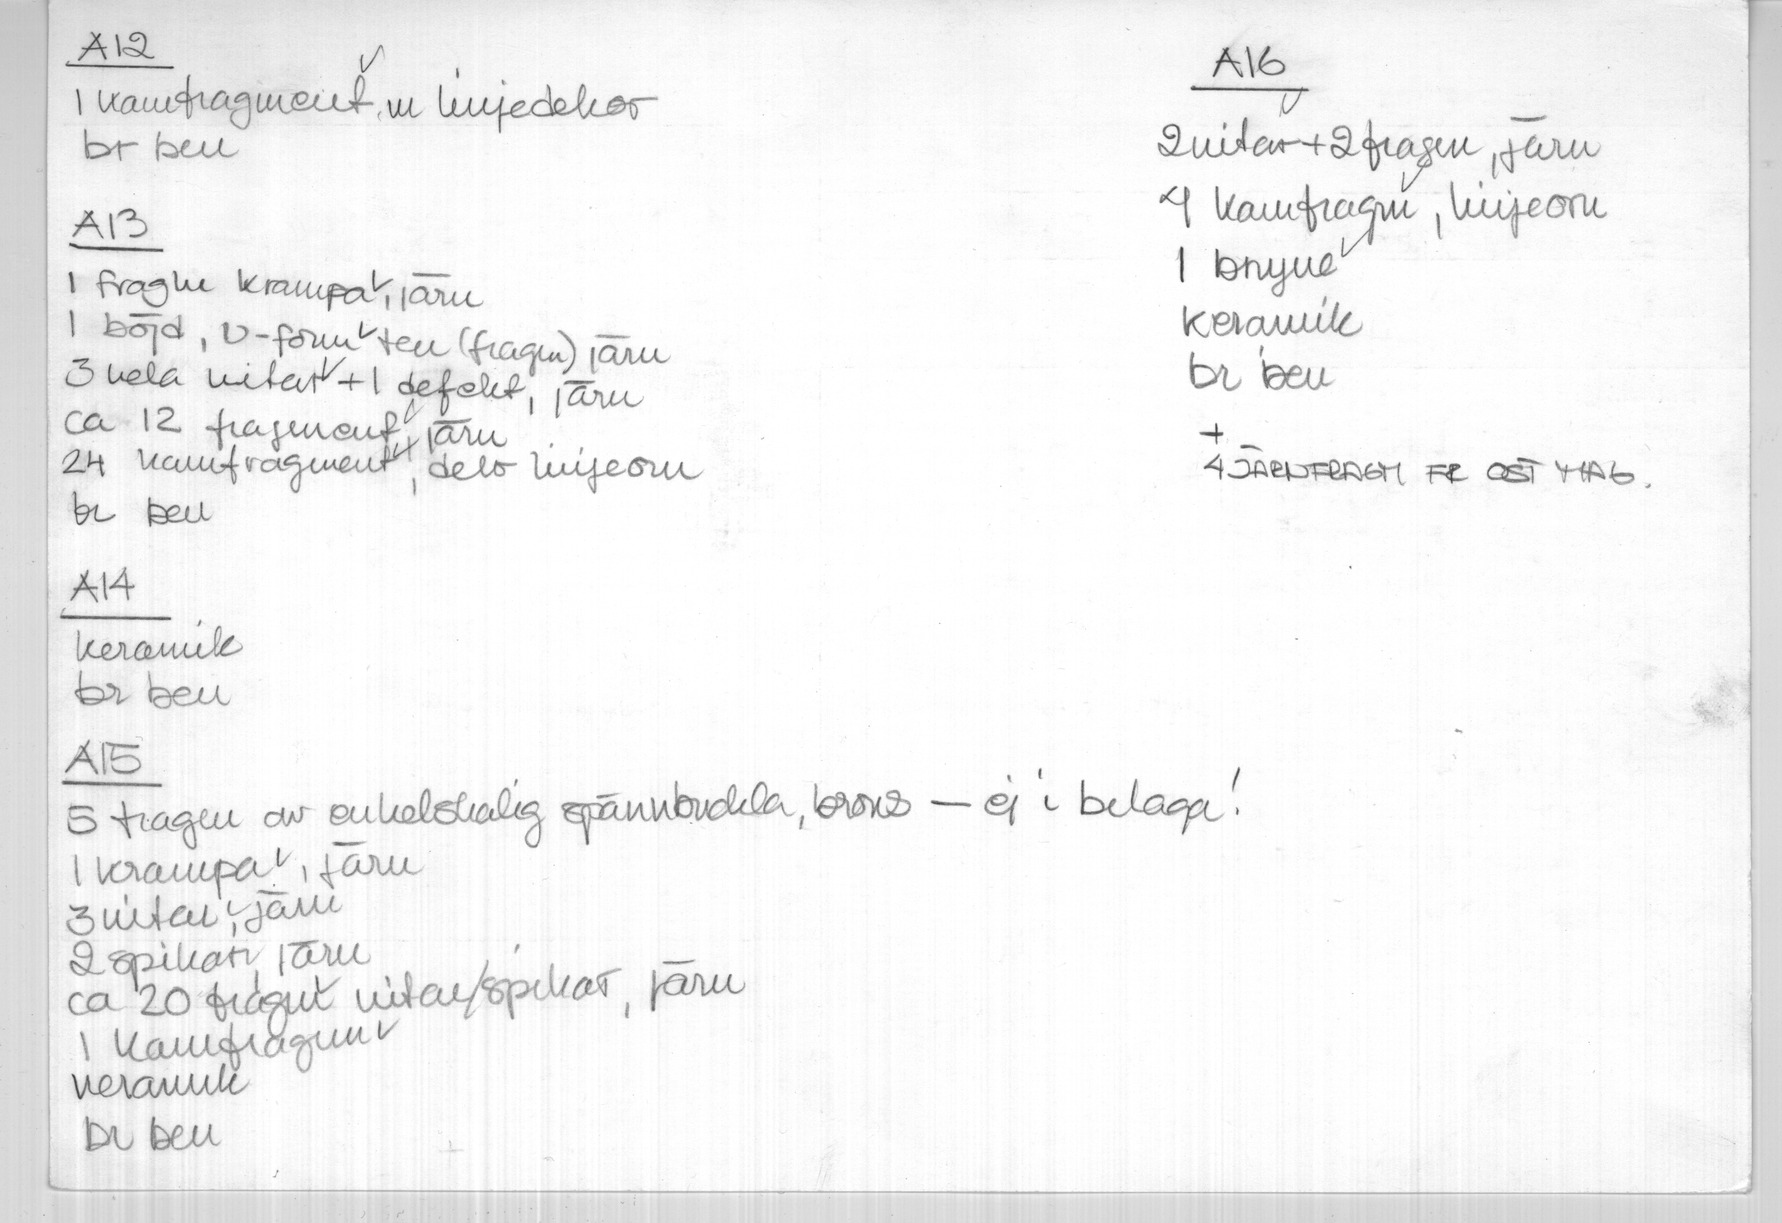 A12
1 kamfragment m linjedekor
br ben
A13
1 fragm krampa, järn
1 böjd, U-form ten (fragm) järn
3 hela nitar + 1 defekt, järn
ca 12 fragment, järn
24 kamfragment, delv linjeorn
br ben
A14
keramik
br ben
A15
5 fragm av enkelskalig spännbuckla, brons — ej i belaga!
1 krampa, järn
3 nitar, järn
2 spikar, järn
ca 20 fragm nitar/spikar, järn
1 kamfragm
keramik
br ben
A16
2 nitar + 2 fragm, järn
4 kamfragm, linjeorn
1 bryne
keramik
br ben
+
4 JÄRNFRAGM FR ÖST